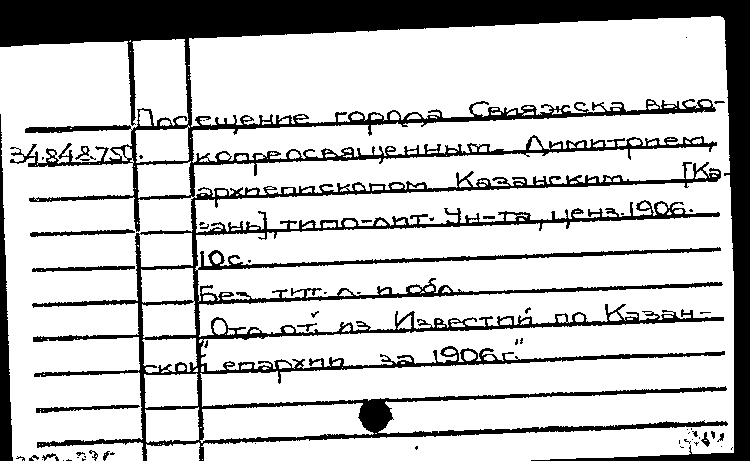 Посещение города Свияжска высо-
34.848.750. копреосвященным Димитрием,
архиепископом Казанским. [Ка-
зань], типо-лит. Ун-та, ценз. 1906.
10 с.
Без тит. л. и обл.
"Отд. от. из Известий по Казан-
ской епархии за 1906г."